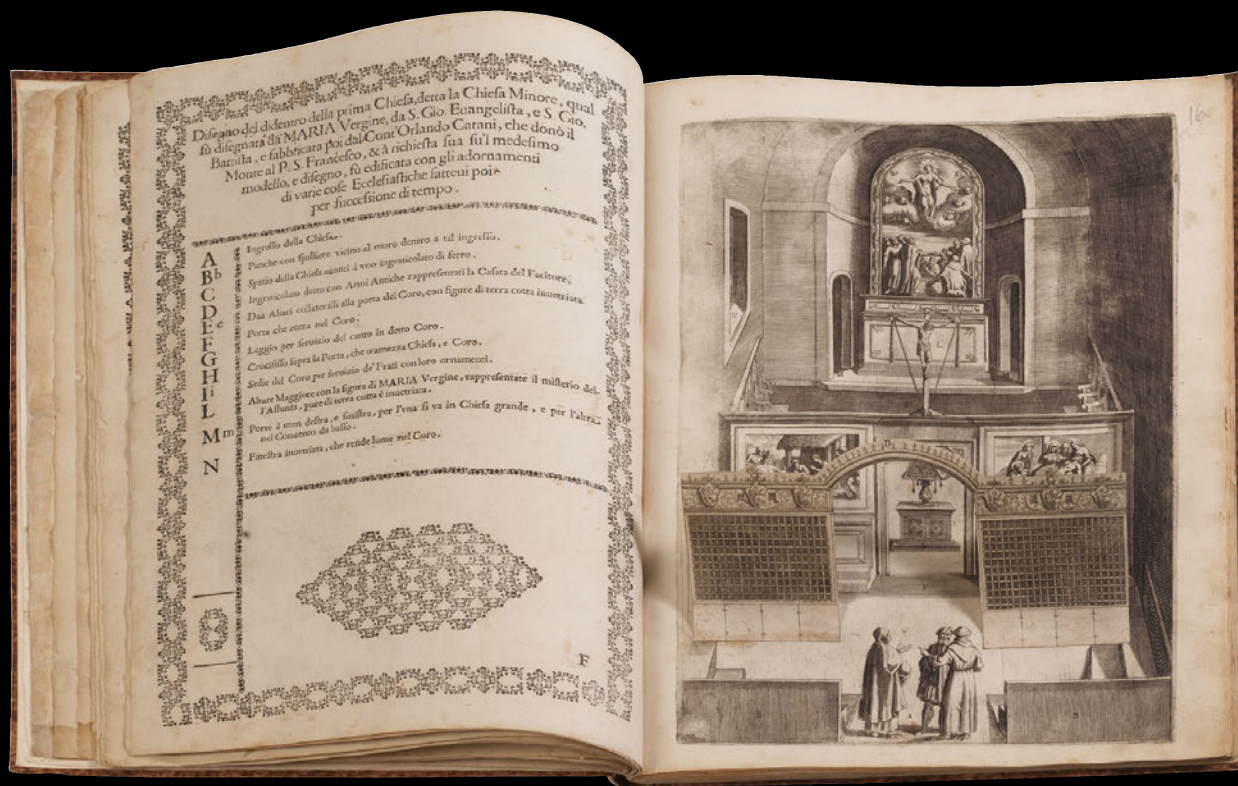 Disegno del didentro della prima Chiesa, detta la Chiesa Minore, qual
fù disegnata da MARIA Vergine, da S. Gio. Euangelista, e S. Gio.
Battista, e fabbricata poi dal Cont'Orlando Catani, che donò il
Monte al P. S. Francesco, & à richiesta sua su'l medesimo
modello, e disegno, fù edificata con gli adornamenti
di varie cose Ecclesiastiche fatteui poi
per successione di tempo.
A Ingresso della Chiesa.
B b Panche con spalliere vicino al muro dentro à tal ingresso.
C Spatio della Chiesa auanti à vno ingraticolato di ferro.
D Ingraticolato detto con Armi Antiche rappresentati la Casata del Facitore.
E e Dua Altari collateralli alla porta del Coro, con figure di terra cotta inuetriata.
F Porta che entra nel Coro.
G Leggio per seruizio del canto in detto Coro.
H Crocifisso sopra la Porta, che tramezza Chiesa, e Coro.
I i Sedie del Coro per seruizio de' Frati con loro ornamenti.
L Altare Maggiore con la figura di MARIA Vergine, rappresentãte il misterio del-
l'Assunta, pure di terra cotta è inuetriata.
M m Porte à man destra, e sinistra, per l'vna si va in Chiesa grande, e per l'altra
nel Conuento da basso.
N Finestra inuetriata, che rende lume nel Coro.
F
16
D
L
B